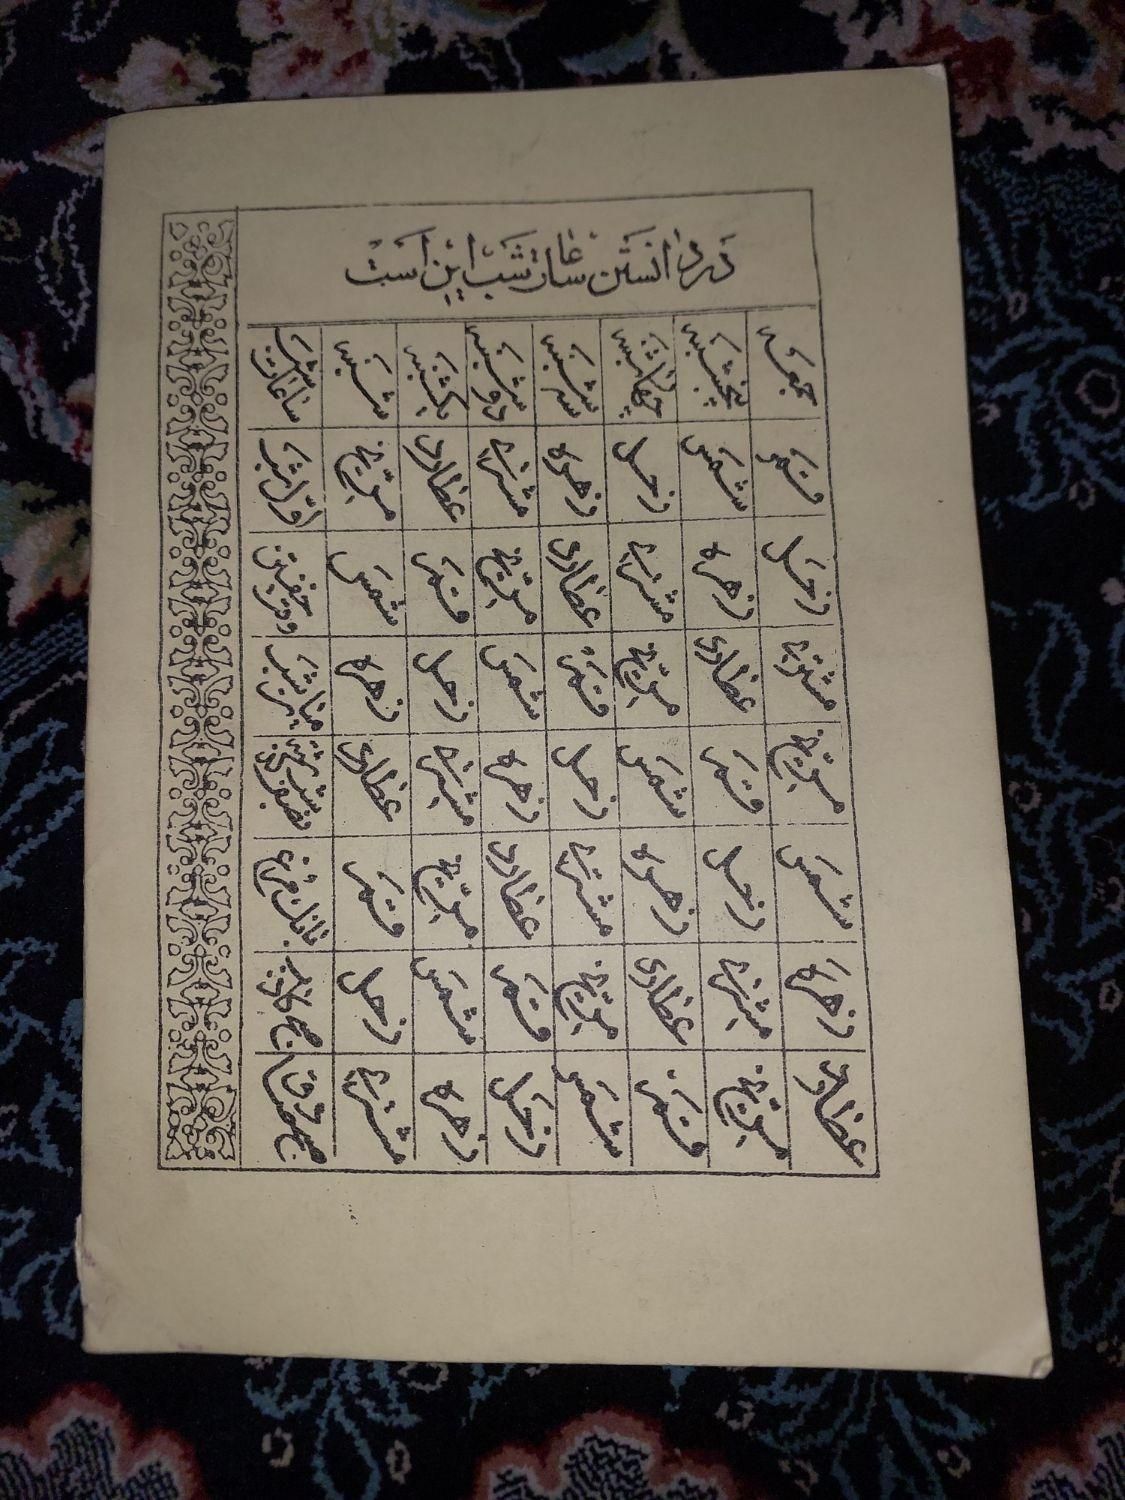 در دانستن ساعات شب این است
جمعه پنجشنبه چهارشنبه سه شنبه دوشنبه یکشنبه شنبه ساعات شب
قمر شمس زحل زهره مشتری عطارد مریخ اول شب
زحل زهره مشتری عطارد مریخ قمر شمس وقت خفتن
مشتری عطارد مریخ قمر شمس زحل زهره شب
مریخ قمر شمس زحل زهره مشتری عطارد
شمس زحل زهره مشتری عطارد مریخ قمر بانک
زهره مشتری عطارد مریخ قمر شمس زحل صبح کاذب
عطارد مریخ قمر شمس زحل زهره مشتری صبح صادق